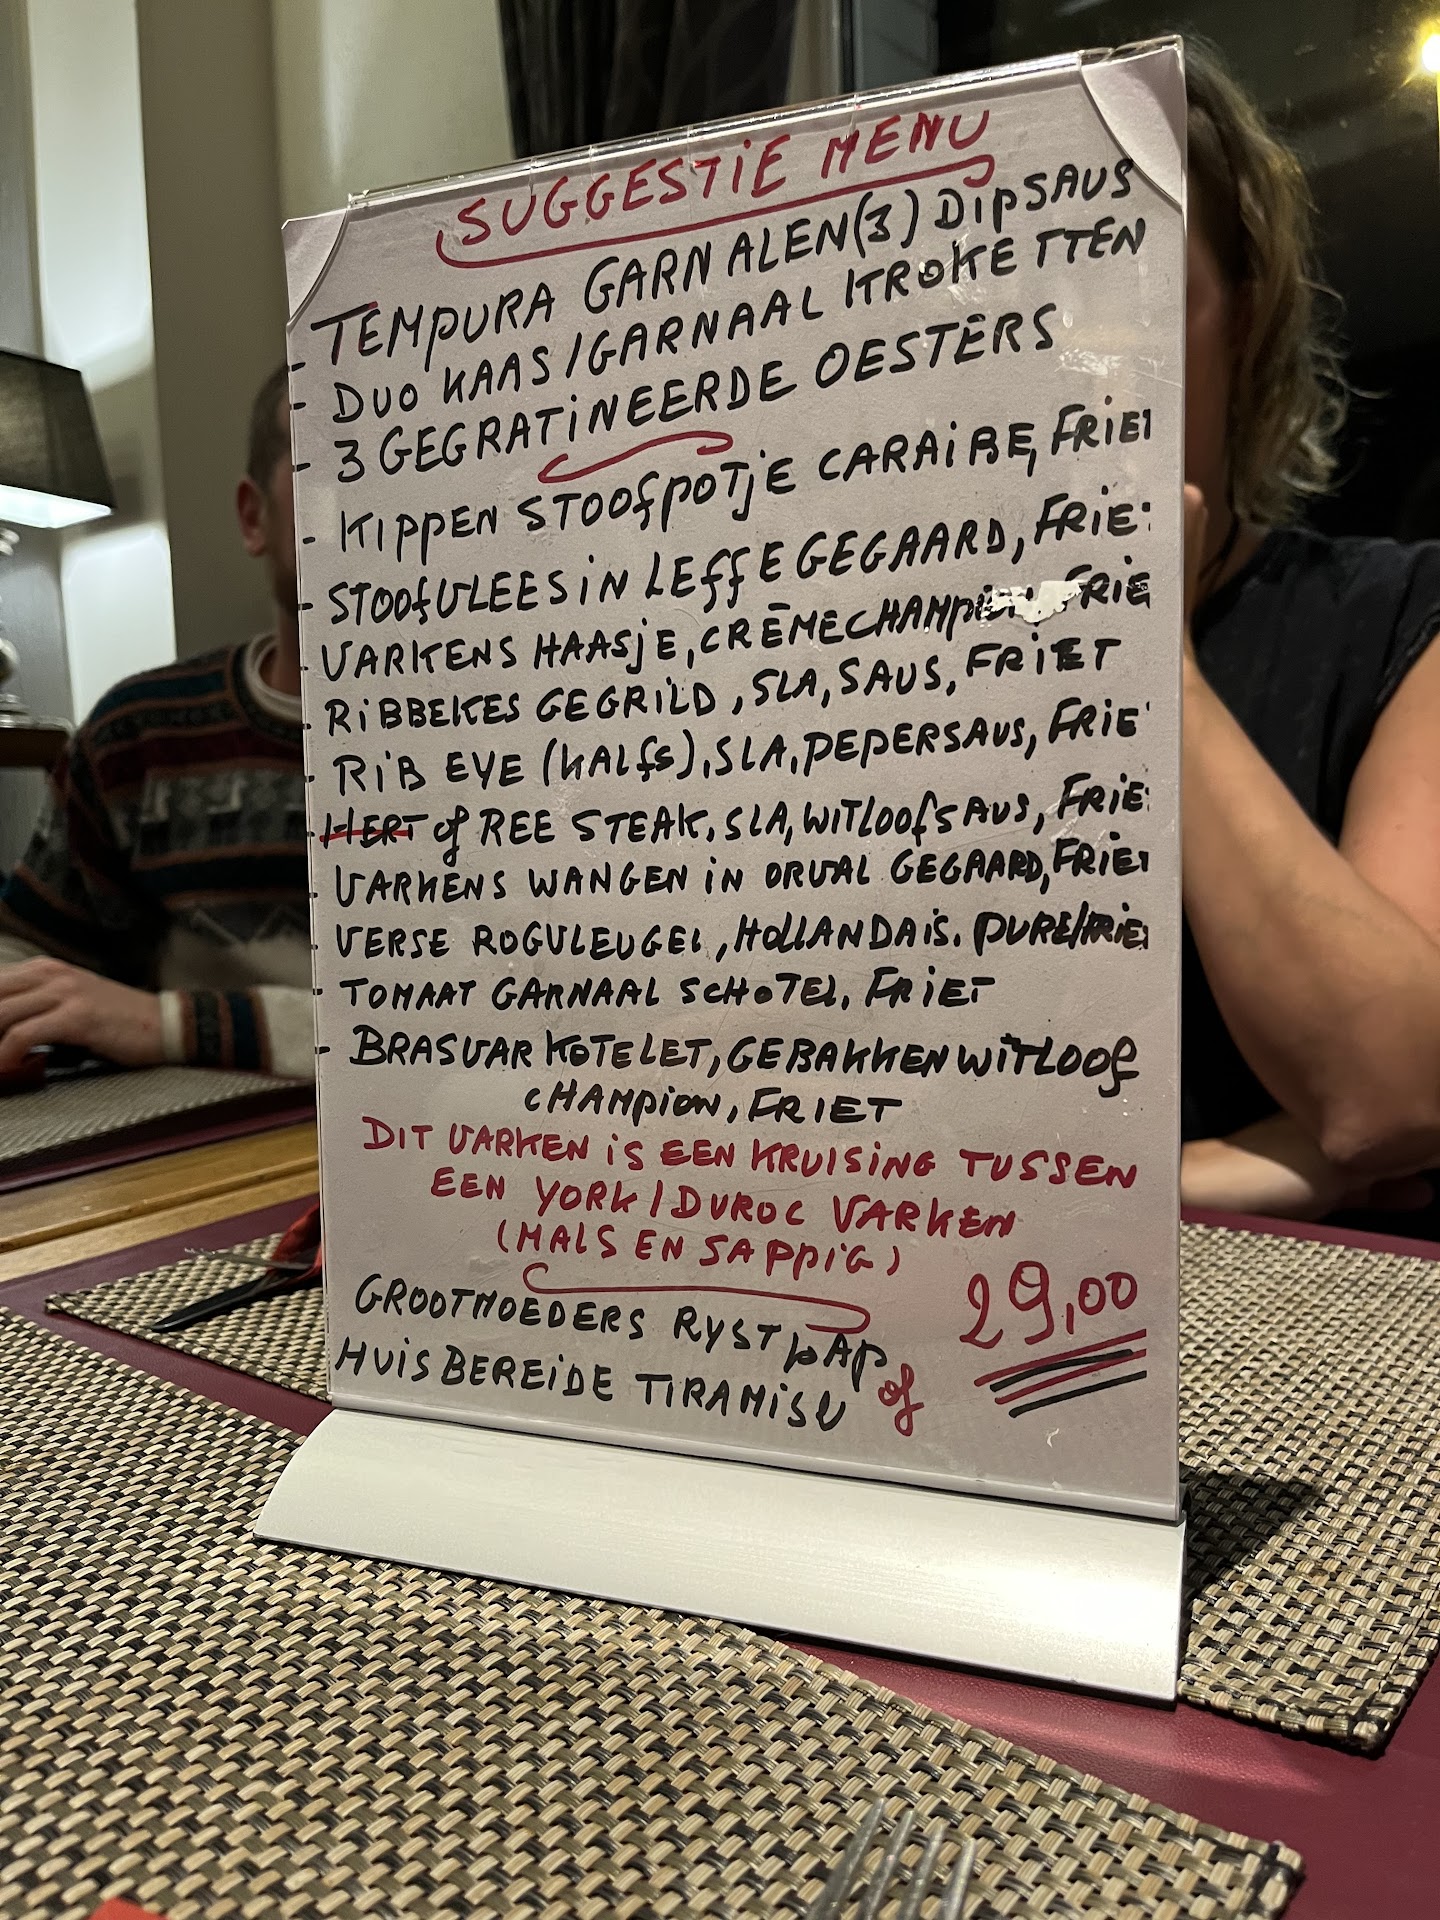 SUGGESTIE MENU
- TEMPURA GARNALEN (3) DIPSAUS
- DUO KAAS/GARNAAL KROKETTEN
- 3 GEGRATINEERDE OESTERS
- KIPPEN STOOFPOTJE CARAIBE, FRIET
- STOOFVLEES IN LEFFE GEGAARD, FRIET
- VARKENS HAASJE, CRÈMECHAMPION, FRIE
- RIBBEKES GEGRILD, SLA, SAUS, FRIET
- RIB EYE (KALFS), SLA, PEPERSAUS, FRIE
- HERT of REE STEAK, SLA, WITLOOFSAUS, FRIE
- VARKENS WANGEN IN ORVAL GEGAARD, FRIET
- VERSE ROGVLEUGEL, HOLLANDAIS. PUREE/FRIET
- TOMAAT GARNAAL SCHOTEL, FRIET
- BRASVAR KOTELET, GEBAKKEN WITLOOF
CHAMPION, FRIET
DIT VARKEN IS EEN KRUISING TUSSEN
EEN YORK/DUROC VARKEN
(MALS EN SAPPIG)
GROOTMOEDERS RYSTPAP of
HUISBEREIDE TIRAMISU
29,00